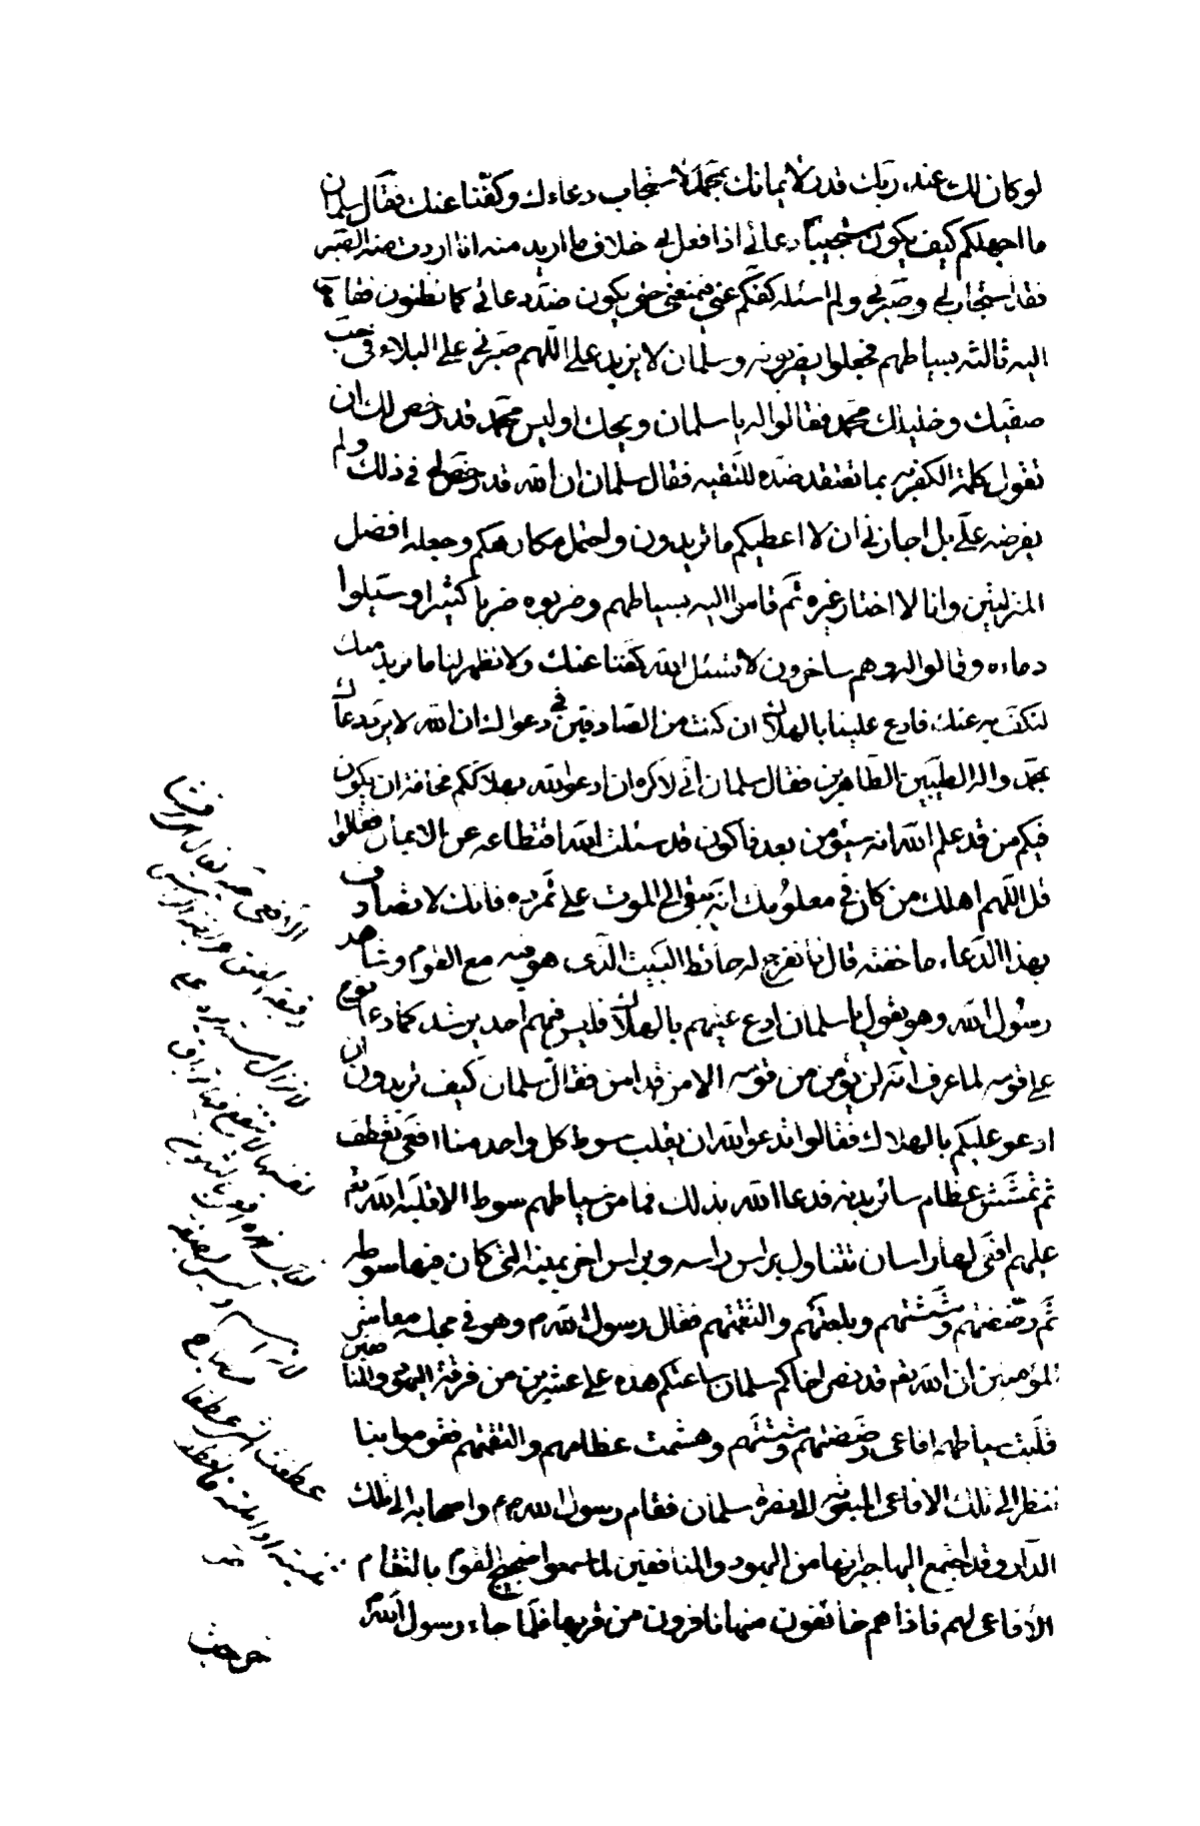 لو كان لك عند ربك قدر لايمانك بمحمد لاستجاب دعاءك وكفنا عنك فقال سلمان
ما اجهلكم كيف يكون مستجيباً دعائي اذا فعل بي خلاف ما اريد منه انا اردت منه الصبر
فقد استجاب لي وصبرني ولم اسئله كفكم عني فيمنعني حتى يكون ضد دعائي كما تظنون فقاموا
اليه ثالثه بسياطهم فجعلوا يضربونه وسلمان لا يزيد على اللهم صبرني على البلاء في حب
صفيك وخليلك محمد فقالوا له يا سلمان ويحك اوليس محمد قد رخص لك ان
تقول كلمة الكفر به بما تعتقد ضده للتقيه فقال سلمان ان الله قد رخص لي في ذلك ولم
يفرضه علي بل اجازني ان لا اعطيكم ما تريدون واحتمل مكارهكم وجعله افضل
المنزلتين وانا لا اختار غيره ثم قاموا اليه بسياطهم وضربوه ضرباً كثيرا وسيلوا
دماءه وقالوا له وهم ساخرون لا تسئل الله كفنا عنك ولا تظهر لنا ما نريد منك
لنكف به عنك فادع علينا بالهلاك ان كنت من الصادقين في دعواك ان الله لا يرد دعاك
بمحمد واله الطيبين الطاهرين فقال سلمان اني لاكره ان ادعو الله بهلاككم مخافة ان يكون
فيكم من قد علم الله انه سيؤمن بعد فاكون قد سئلت الله اقتطاعه عن الايمان فقالوا
قل اللهم اهلك من كان في معلومك انه يبقى الى الموت على تمرده فانك لا تصادف
بهذا الدعاء ما خفته قال فانفرج له حائط البيت الذي هو فيه مع القوم وشاهد
رسول الله وهو يقول يا سلمان ادع عليهم بالهلاك فليس فيهم احد يرشد كما دعا نوح
على قومه لما عرف انه لن يؤمن من قومه الا من قد امن فقال سلمان كيف تريدون ان
ادعو عليكم بالهلاك فقالوا تدعو الله ان يقلب سوط كل واحد منا افعى تعطف
ثم تمشش عظام سائر بدنه فدعا الله بذلك فما من سياطهم سوط الا قلبه الله تع
عليهم افعى لها راسان تتناول براس راسه وبراس اخر يمينه التي كان فيها سوطه
ثم رضضتهم ومششتهم وبلعتهم والتقمتهم فقال رسول الله ص وهو في مجلسه معاشر
المؤمنين ان الله تع قد نصر اخاكم سلمان ساعتكم هذه على عشرين من فرقة اليهود والمنافقين
قلبت سياطهم افاعى رضضتهم ومششتهم وهشمت عظامهم والتقمتهم فقوموا بنا
ننظر الى تلك الافاعى المبعوثه لنصرة سلمان فقام رسول الله ص واصحابه الى تلك
الدار وقد اجتمع اليها جيرانها من اليهود والمنافقين لما سمعوا ضجيج القوم بالتقام
الافاعى لهم فاذا هم خائفون منها نافرون من قربها فلما جاء رسول الله
خرجت
الافعى حية يقال
دقيقة العنق عريضة الراس
لا تزال مستديرة على
نفسها لا ينفع منها ترياق
عطفت الشئ عطفا
ثنيته او املته فانعطف